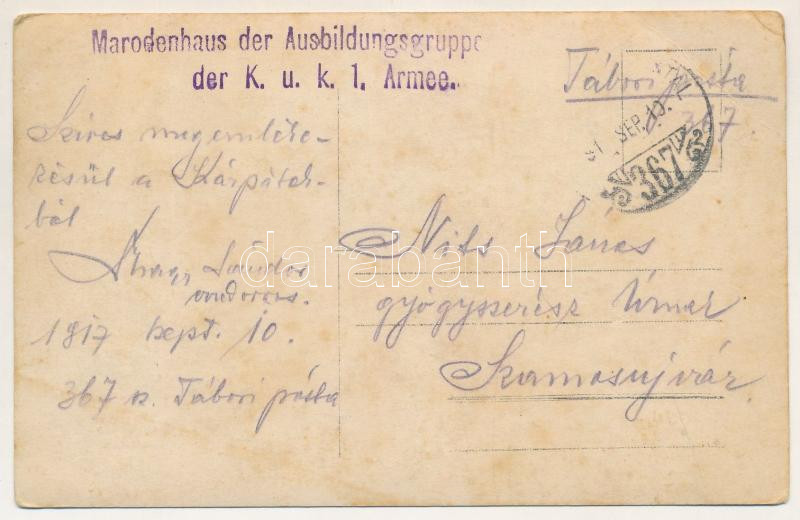 Marodenhaus der Ausbildungsgruppe
der K. u. k. 1. Armee.
Tábori posta
367.
SEP. 10.
367
Szives megemléke-
zésül a Kárpátok-
ból
Sándor
1917 szept. 10.
367 sz. Tábori pósta
Nits János
gyógyszerész Úrnak
Szamosujvár
darabanth